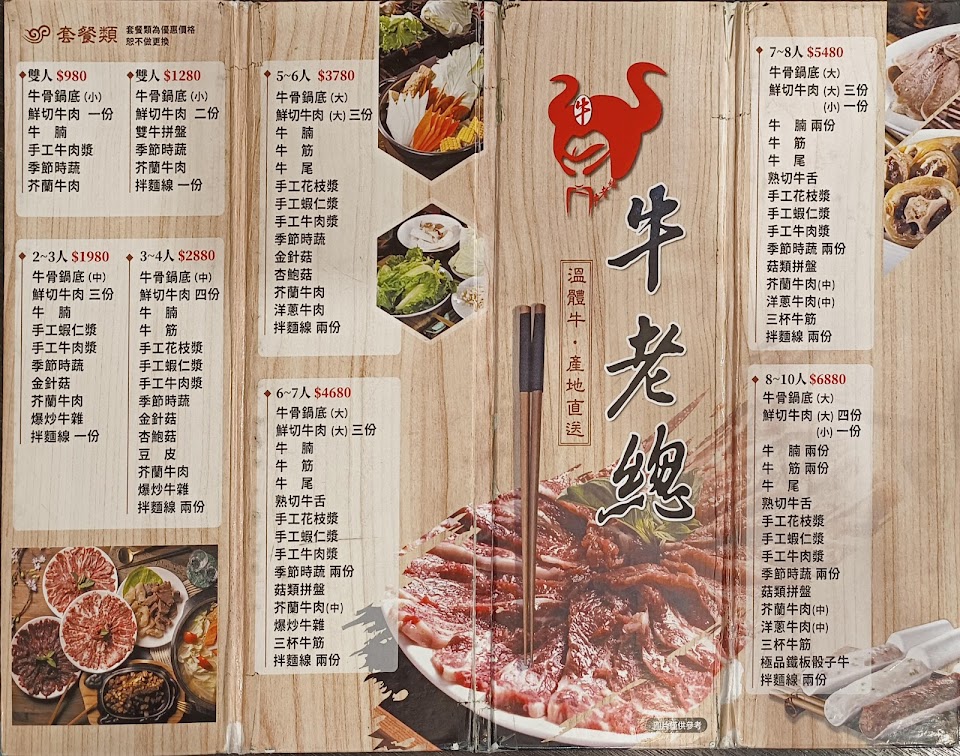 套餐類
套餐類為優惠價格
恕不做更換
雙人 $980
牛骨鍋底 (小)
鮮切牛肉 一份
牛 腩
手工牛肉漿
季節時蔬
芥蘭牛肉
雙人 $1280
牛骨鍋底 (小)
鮮切牛肉 二份
雙牛拼盤
季節時蔬
芥蘭牛肉
拌麵線 一份
2~3人 $1980
牛骨鍋底 (中)
鮮切牛肉 三份
牛 腩
手工蝦仁漿
手工牛肉漿
季節時蔬
金針菇
芥蘭牛肉
爆炒牛雜
拌麵線 一份
3~4人 $2880
牛骨鍋底 (中)
鮮切牛肉 四份
牛 腩
牛 筋
手工花枝漿
手工蝦仁漿
手工牛肉漿
季節時蔬
金針菇
杏鮑菇
豆 皮
芥蘭牛肉
爆炒牛雜
拌麵線 兩份
5~6人 $3780
牛骨鍋底 (大)
鮮切牛肉 (大) 三份
牛 腩
牛 筋
牛 尾
手工花枝漿
手工蝦仁漿
手工牛肉漿
季節時蔬
金針菇
杏鮑菇
芥蘭牛肉
洋蔥牛肉
拌麵線 兩份
6~7人 $4680
牛骨鍋底 (大)
鮮切牛肉 (大) 三份
牛 腩
牛 筋
牛 尾
熟切牛舌
手工花枝漿
手工蝦仁漿
手工牛肉漿
季節時蔬 兩份
菇類拼盤
芥蘭牛肉(中)
爆炒牛雜
三杯牛筋
拌麵線 兩份
牛
牛老總
溫體牛・產地直送
圖片僅供參考
7~8人 $5480
牛骨鍋底 (大)
鮮切牛肉 (大) 三份
(小) 一份
牛 腩 兩份
牛 筋
牛 尾
熟切牛舌
手工花枝漿
手工蝦仁漿
手工牛肉漿
季節時蔬 兩份
菇類拼盤
芥蘭牛肉(中)
洋蔥牛肉(中)
三杯牛筋
拌麵線 兩份
8~10人 $6880
牛骨鍋底 (大)
鮮切牛肉 (大) 四份
(小) 一份
牛 腩 兩份
牛 筋 兩份
牛 尾
熟切牛舌
手工花枝漿
手工蝦仁漿
手工牛肉漿
季節時蔬 兩份
菇類拼盤
芥蘭牛肉(中)
洋蔥牛肉(中)
三杯牛筋
極品鐵板骰子牛
拌麵線 兩份